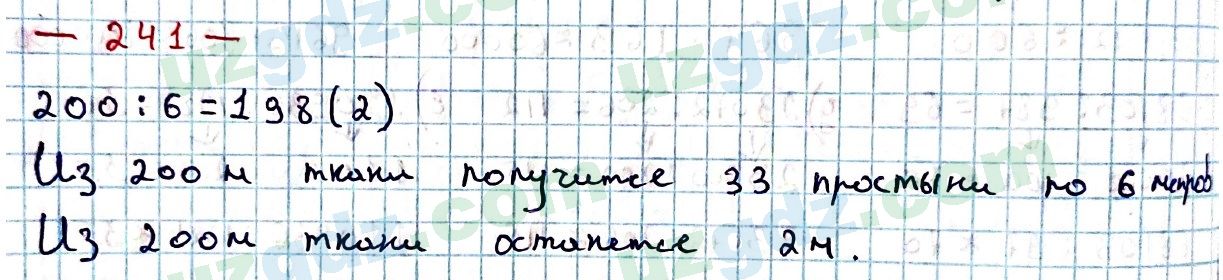 — 241 —
200 : 6 = 198 (2)
Из 200 м ткани получитсе 33 простыни по 6 метров
Из 200м ткани останетсе 2м.